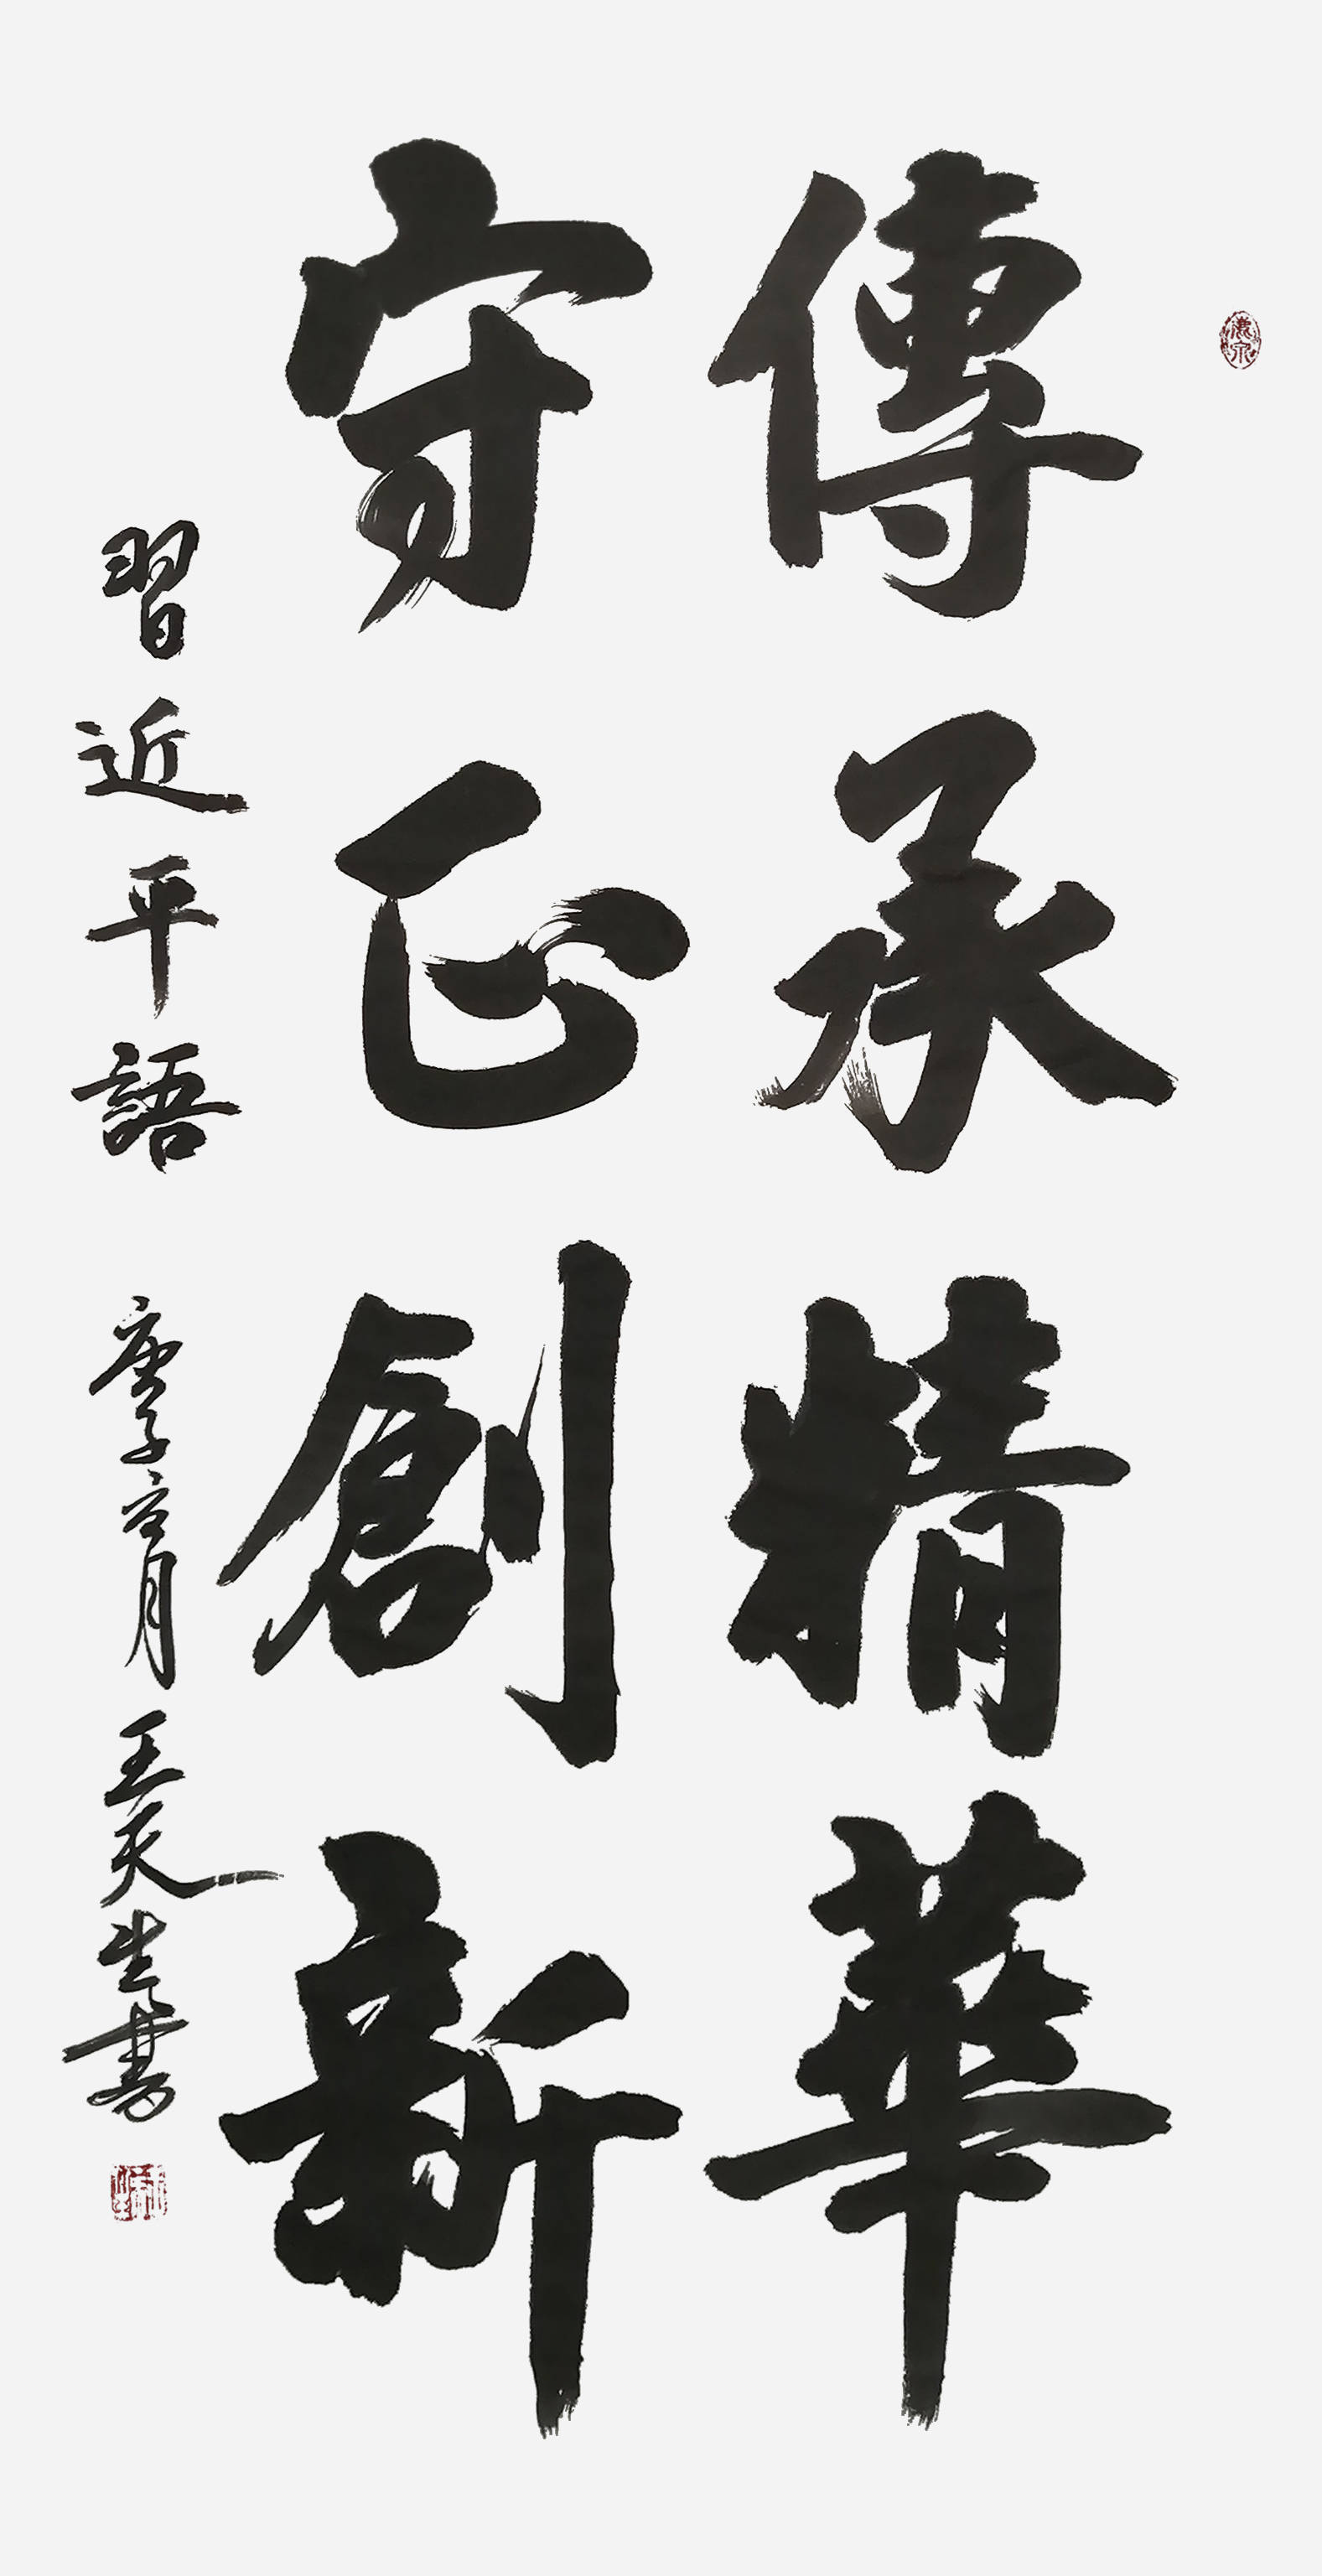 傳承精華
守正創新
習近平語 庚子六月 王天生書